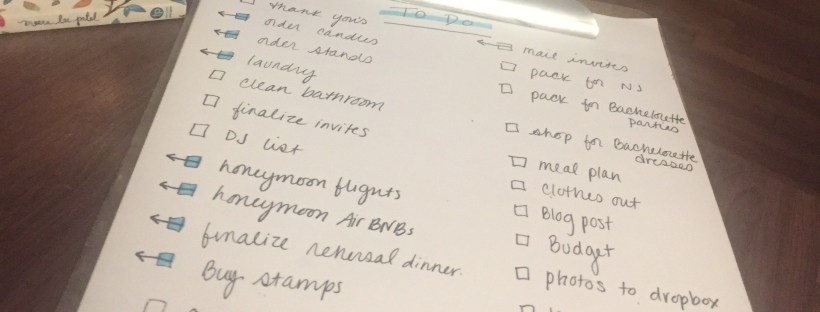 TO DO
thank yous
order candies
order stands
laundry
clean bathroom
finalize invites
DJ list
honeymoon flights
honeymoon AirBNBs
finalize rehersal dinner.
Buy stamps
mail invites
pack for NJ
pack for Bachelorette
parties
shop for Bachelorette
dresses
meal plan
clothes out
Blog post
Budget
photos to dropbox